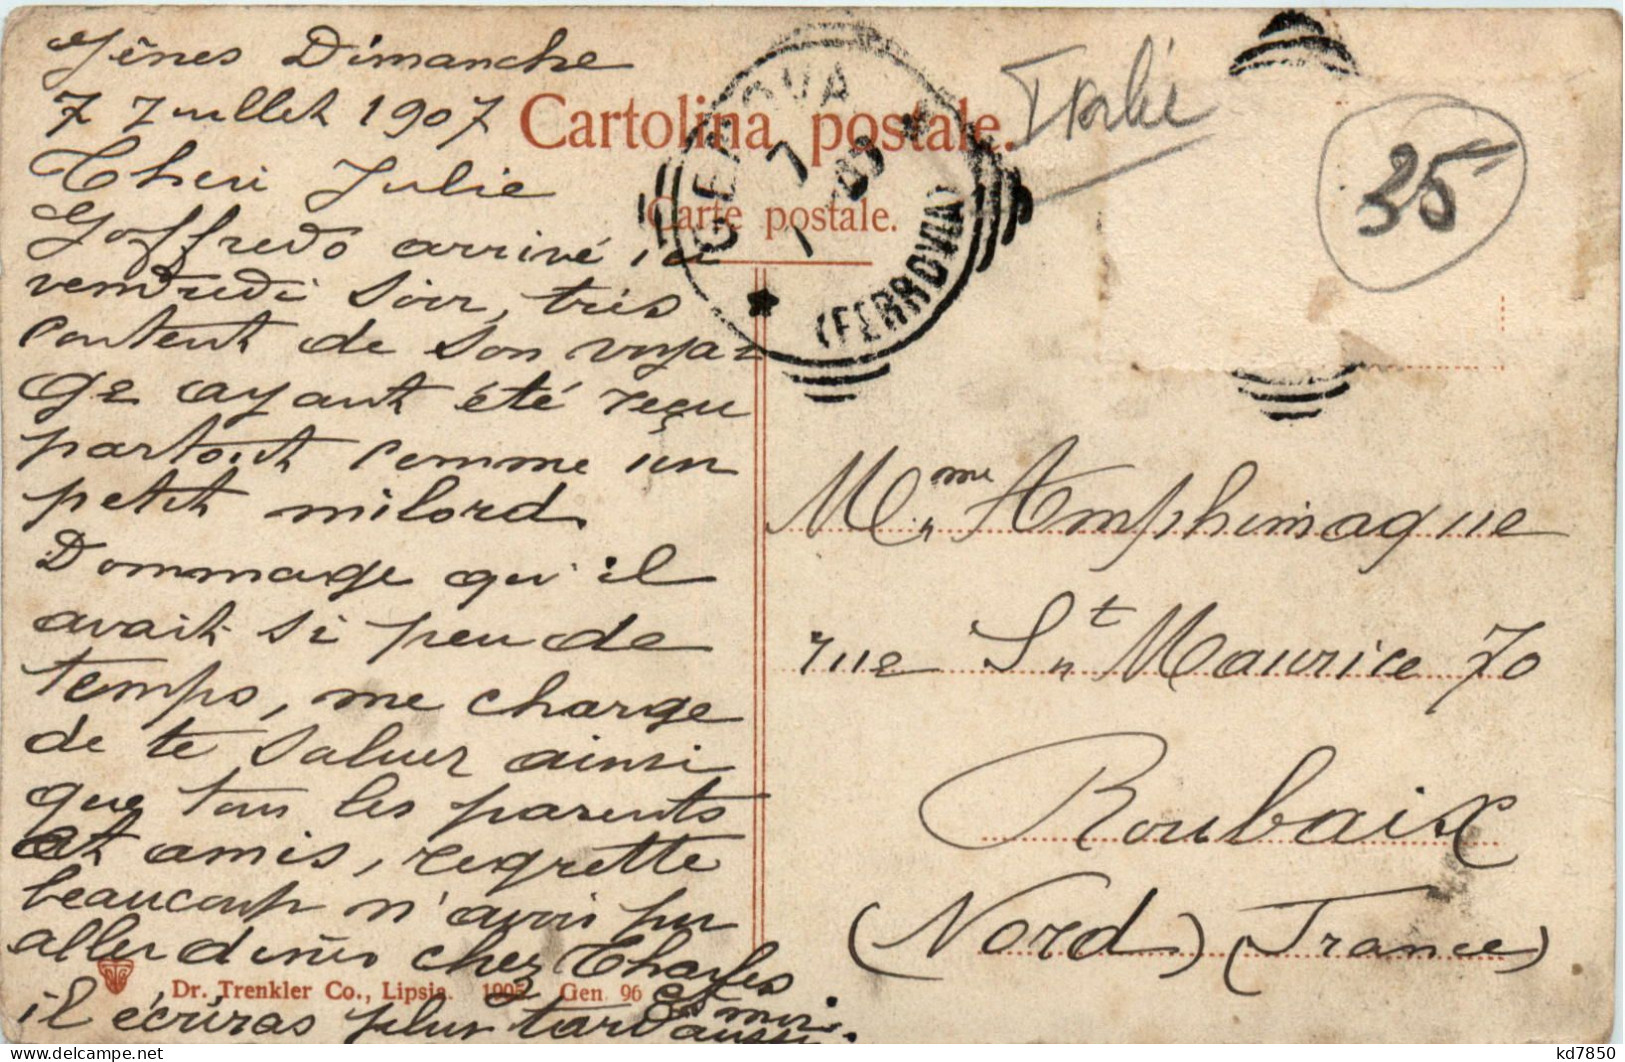 Gênes Dimanche
7 Juillet 1907
Cheri Julie
Goffredo arrivé ici
vendredi soir, très
content de son voya-
ge ayant été reçu
partout comme un
petit milord.
Dommage qu'il
avait si peu de
temps, me charge
de te saluer ainsi
que tous les parents
et amis, regrette
beaucoup n'avoir pu
aller diner chez Charles
il écriras plus tard
et moi aussi.
Cartolina postale.
Carte postale.
GENOVA
(FERROVIA)
7
7
07
Italie
35
Mme Amphimaque
rue St Maurice 70
Roubaix
(Nord) (France)
Dr. Trenkler Co., Lipsia. 1905 Gen 96
kd7850